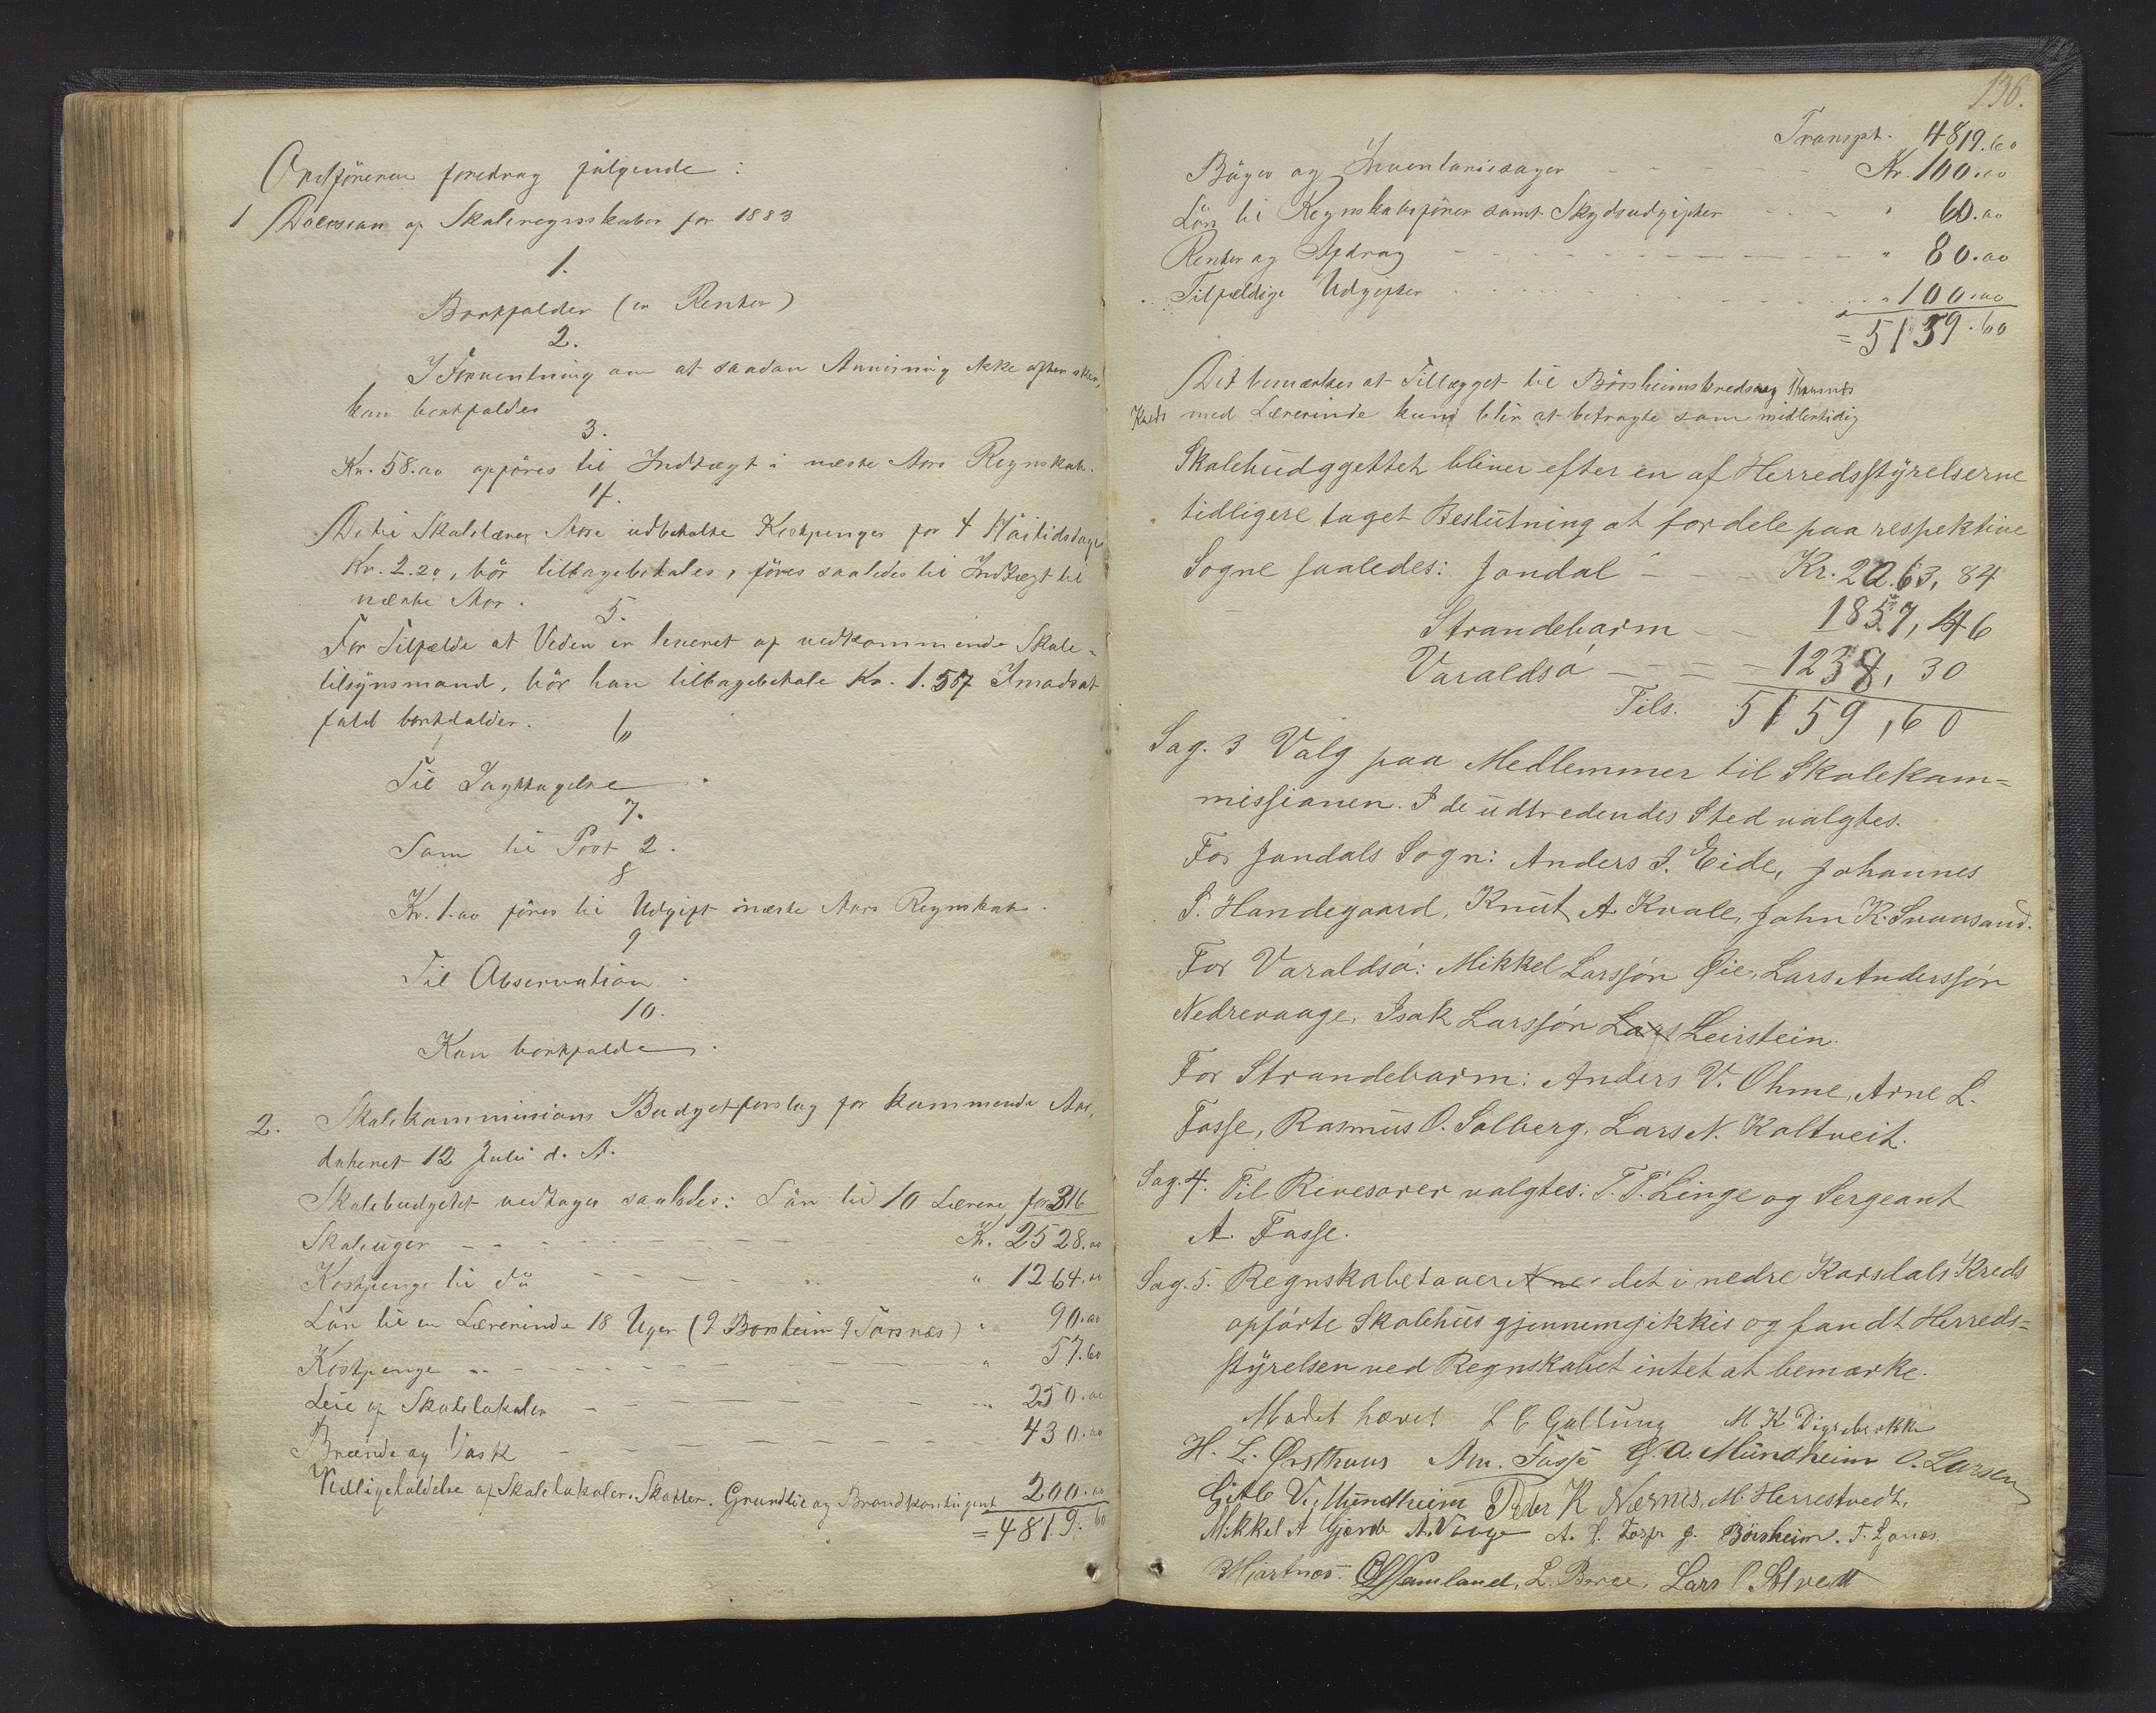 Ordføreren foredrog følgende:
1 Decision af Skoleregnskabet for 1883
1.
Bortfalder (er Renter)
2.
I Forventning om at saadan Anvisning ikke oftere sker,
kan bortfalde
3.
Kr. 58.00 opføres til Indtægt i næste Aars Regnskab.
4.
De til Skolelærer Aase udbetalte Kostpenge for 4 Høitidsdage
Kr. 2.20, bör tilbagebetales, føres saaledes til Indtægt til
næste Aar.
5.
For Tilfælde at Veden er leveret af vedkommende Skole-
tilsynsmand, bör han tilbagebetale Kr. 1.507 I modsat
fald bortfalder.
6
Til Iagttagelse.
7.
Som til Post 2.
8
Kr. 1.00 føres til Udgift i næste Aars Regnskab.
9
Til Observation.
10.
Kan bortfalde.
2. Skolekommissions Budgetforslag for kommende Aar,
dateret 12 Juli d. A.
Skolebudgetet vedtages saaledes: Løn til 10 Lærere for 316
Skoleuger Kr. 2528.00
Kostpenge til Do " 1264.00
Løn til en Lærerinde 18 Uger (9 Børsheim 9 Torsnæs) " 90.00
Kostpenge " 57.60
Leie af Skolelokaler 250.00
Brænde og Vask 430.00
Vedligeholdelse af Skolelokaler, Skatter, Grundleie og Brandkontingent 200.00
= 4819.60
136.
Transpt. 4819.60
Bøger og Inventariesager Kr. 100.00
Løn til Regnskabsfører samt Skydsudgifter " 60.00
Renter og Afdrag " 80.00
Tilfældige Udgifter " 100.00
= 5159.60
Det bemærkes at Tillægget til Börsheimskreds og Thorsnæs
Kreds med Lærerinde kun blir at betragte som midlertidig
Skolebudggettet bliver efter en af Herredsstyrelserne
tidligere taget Beslutning at fordele paa respektive
Sogne saaledes: Jondal Kr. 2063,84
Strandebarm 1857,46
Varaldsø 1238,30
Tils. 5159,60
Sag. 3 Valg paa Medlemmer til Skolekom=
missionen. I de udtrædendes Sted valgtes.
For Jondals Sogn: Anders J. Eide, Johannes
S. Handegaard, Knut A. Kvale, John K. Svaasand.
For Varaldsø: Mikkel Larssøn Øie, Lars Anderssøn
Nedrevaage, Isak Larssøn Lars Leirstein.
For Strandebarm: Anders V. Ohme, Arne L.
Fosse, Rasmus O. Solberg, Lars N. Koltveit.
Sag. 4. Til Revesorer valgtes: T. T. Linge og Sergeant
A. Fosse.
Sag. 5. Regnskabet over det i nedre Korsdals Kreds
opførte Skolehus gjennemgikkis og fandt Herreds=
styrelsen ved Regnskabet intet at bemærke.
Mødet hævet L C Galtung M K Digrebrekke
H. L. Østhuus Am. Fosse G. A. Mundheim O. Larsen
Gitle V. Mundheim Peder K Næsnes, M. Herrestvedt,
Mikkel A Gjerde A. Vaage A. J. J. Börsheim. T. Ljones.
Hjartnæs. O Samland, L. Berge, Lars O Solvedt